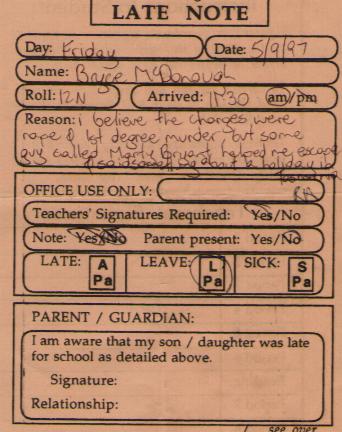 LATE NOTE
Day: Friday Date: 5/9/97
Name: Bryce McDonough
Roll: 12N Arrived: 11:30 am/pm
Reason: i believe the charges were
rape & 1st degree murder but some
guy called Martin Bryant helped me escape
& said something about a holiday in
OFFICE USE ONLY: RA
Teachers' Signatures Required: Yes/No
Note: Yes/No Parent present: Yes/No
LATE: A Pa LEAVE: L Pa SICK: S Pa
PARENT / GUARDIAN:
I am aware that my son / daughter was late
for school as detailed above.
Signature:
Relationship:
see over